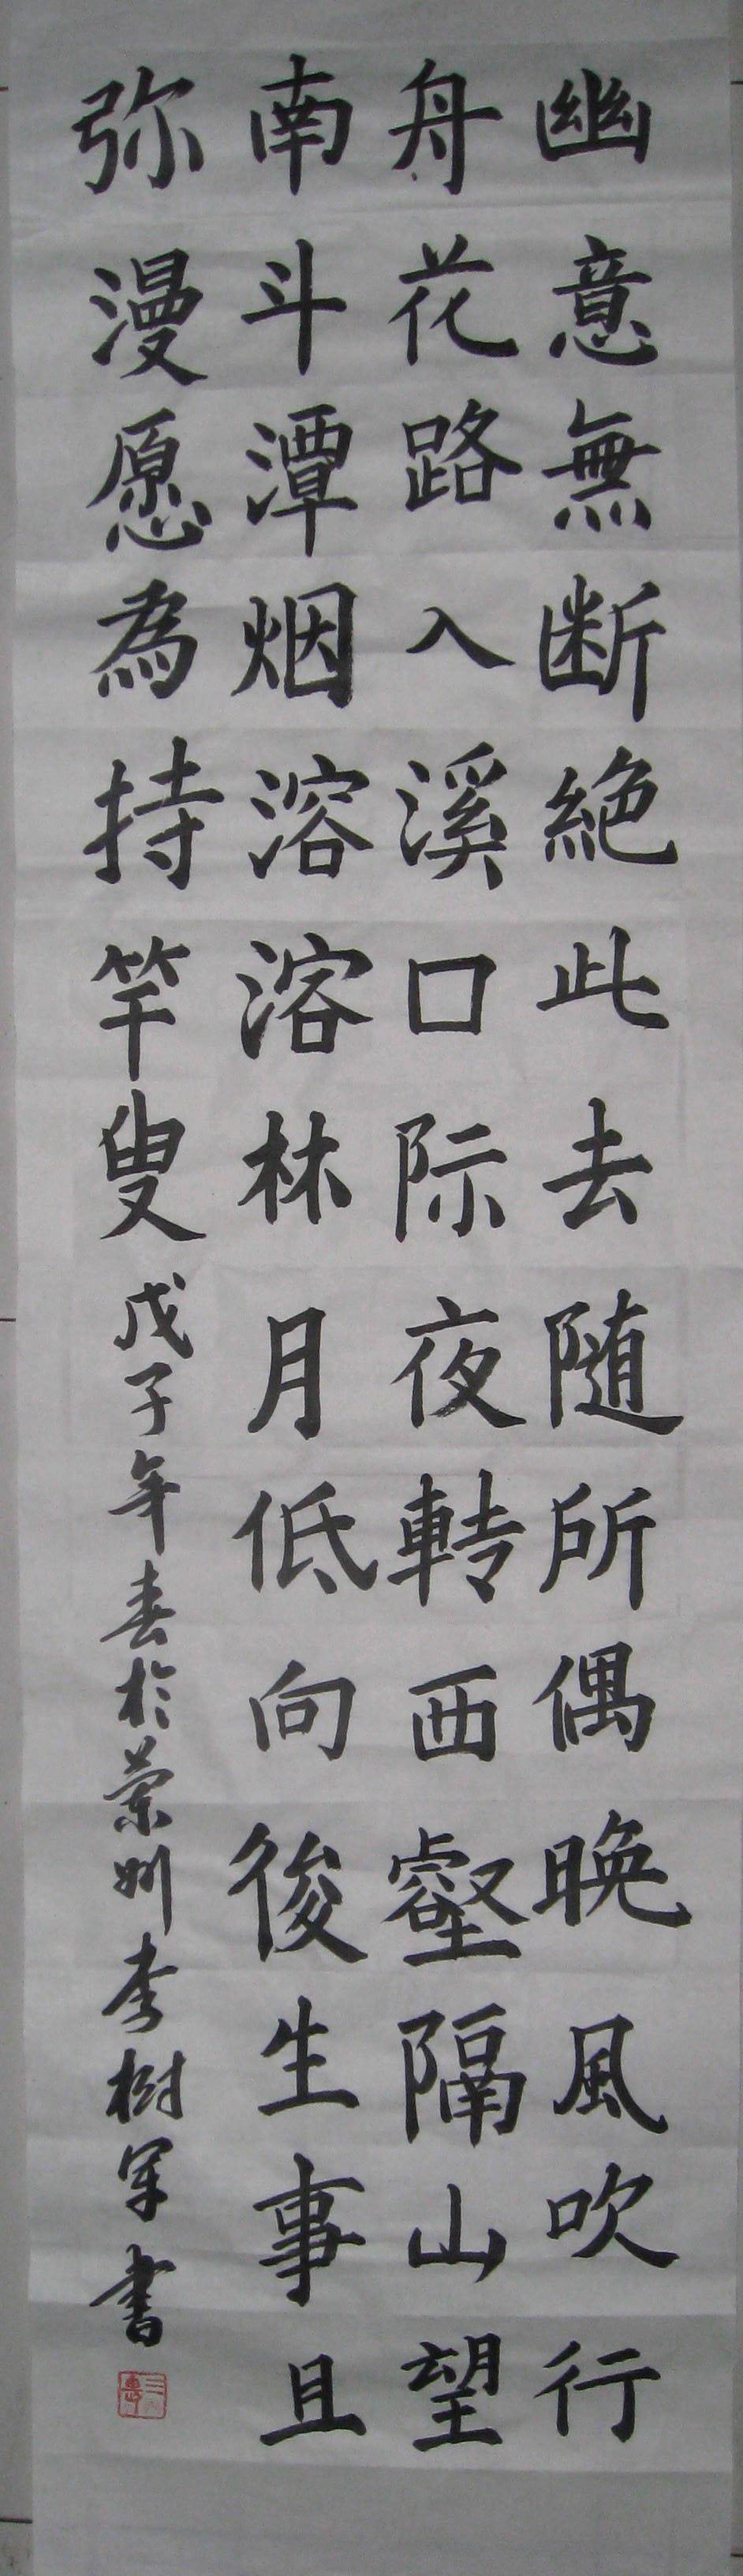 幽意無断絶此去随所偶晚風吹行
舟花路入溪口际夜転西壑隔山望
南斗潭烟溶溶林月低向後生事且
弥漫愿為持竿叟
戊子年春於蘭州李樹军書